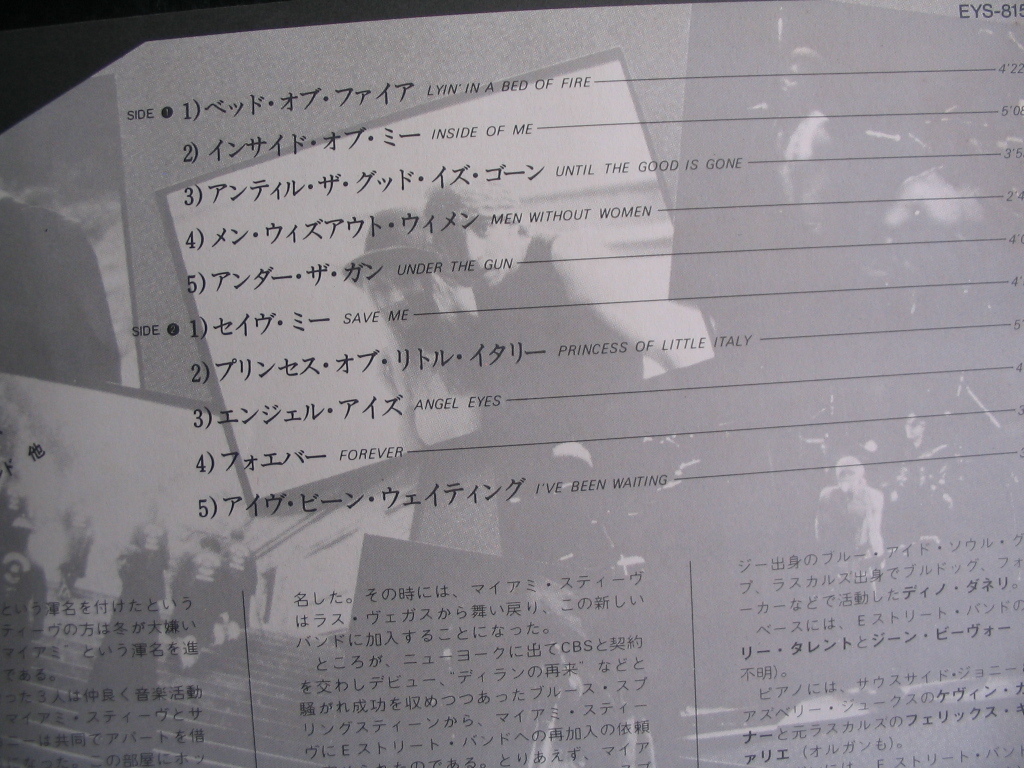 EYS-815
SIDE ❶ 1) ベッド・オブ・ファイア LYIN' IN A BED OF FIRE 4'22
2) インサイド・オブ・ミー INSIDE OF ME 5'08
3) アンティル・ザ・グッド・イズ・ゴーン UNTIL THE GOOD IS GONE 3'5
4) メン・ウィズアウト・ウィメン MEN WITHOUT WOMEN 2'4
5) アンダー・ザ・ガン UNDER THE GUN 4'0
SIDE ❷ 1) セイヴ・ミー SAVE ME 4'
2) プリンセス・オブ・リトル・イタリー PRINCESS OF LITTLE ITALY 5
3) エンジェル・アイズ ANGEL EYES 4
4) フォエバー FOREVER 3
5) アイヴ・ビーン・ウェイティング I'VE BEEN WAITING 3
ド 他
という渾名を付けたという
ティーヴの方は冬が大嫌い
マイアミ”という渾名を進
である。
った3人は仲良く音楽活動
マイアミ・スティーヴとサ
ニーは共同でアパートを借
になった。この部屋にホッ
名した。その時には、マイアミ・スティーヴ
はラス・ヴェガスから舞い戻り、この新しい
バンドに加入することになった。
ところが、ニューヨークに出てCBSと契約
を交わしデビュー、“ディランの再来”などと
騒がれ成功を収めつつあったブルース・スプ
リングスティーンから、マイアミ・スティー
ヴにEストリート・バンドへの再加入の依頼
られたのである。とりあえず、マイア
ジー出身のブルー・アイド・ソウル・グ
プ、ラスカルズ出身でブルドッグ、フォ
ーカーなどで活動したディノ・ダネリ。
ベースには、Eストリート・バンドの
リー・タレントとジーン・ビーヴォー
不明)。
ピアノには、サウスサイド・ジョニー&
アズベリー・ジュークスのケヴィン・カ
ナーと元ラスカルズのフェリックス・キ
ァリエ(オルガンも)。
には、Eストリート・バンド